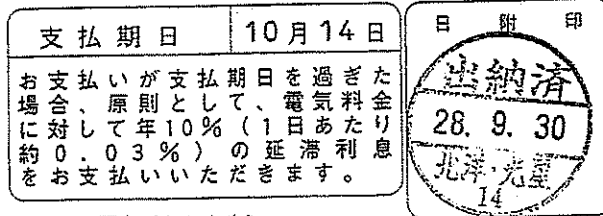 支払期日 10月14日
お支払いが支払期日を過ぎた
場合、原則として、電気料金
に対して年10%(1日あたり
約0.03%)の延滞利息
をお支払いいただきます。
日附印
出納済
28. 9. 30
北洋・光星
14